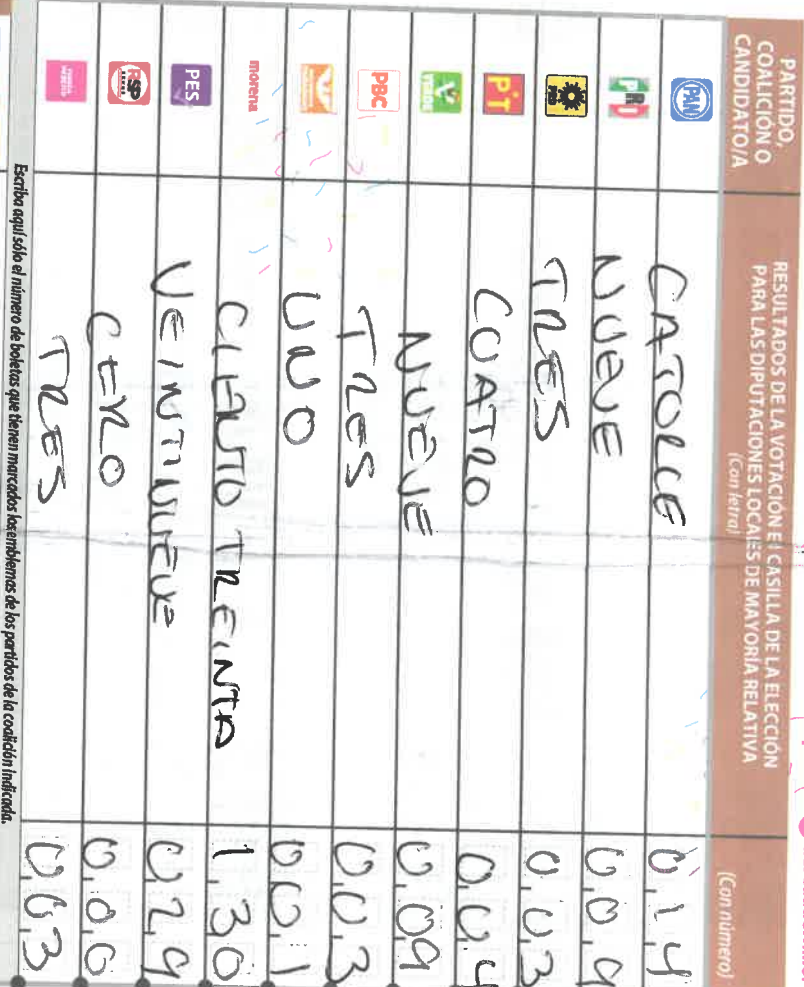 PARTIDO, COALICIÓN O CANDIDATO/A
RESULTADOS DE LA VOTACIÓN E CASILLA DE LA ELECCIÓN PARA LAS DIPUTACIONES LOCALES DE MAYORÍA RELATIVA
(Con letra)
(Con número)
PAN CATORCE 0 1 4
PRD NUEVE 0 0 9
TRES 0 0 3
PT CUATRO 0 0 4
VERDE NUEVE 0 0 9
PBC TRES 0 0 3
UNO 0 0 1
morena CIENTO TREINTA 1 3 0
PES VEINTINUEVE 0 2 9
RSP CERO 0 0 0
TRES 0 0 3
Escriba aquí sólo el número de boletas que tienen marcados los emblemas de los partidos de la coalición indicada.